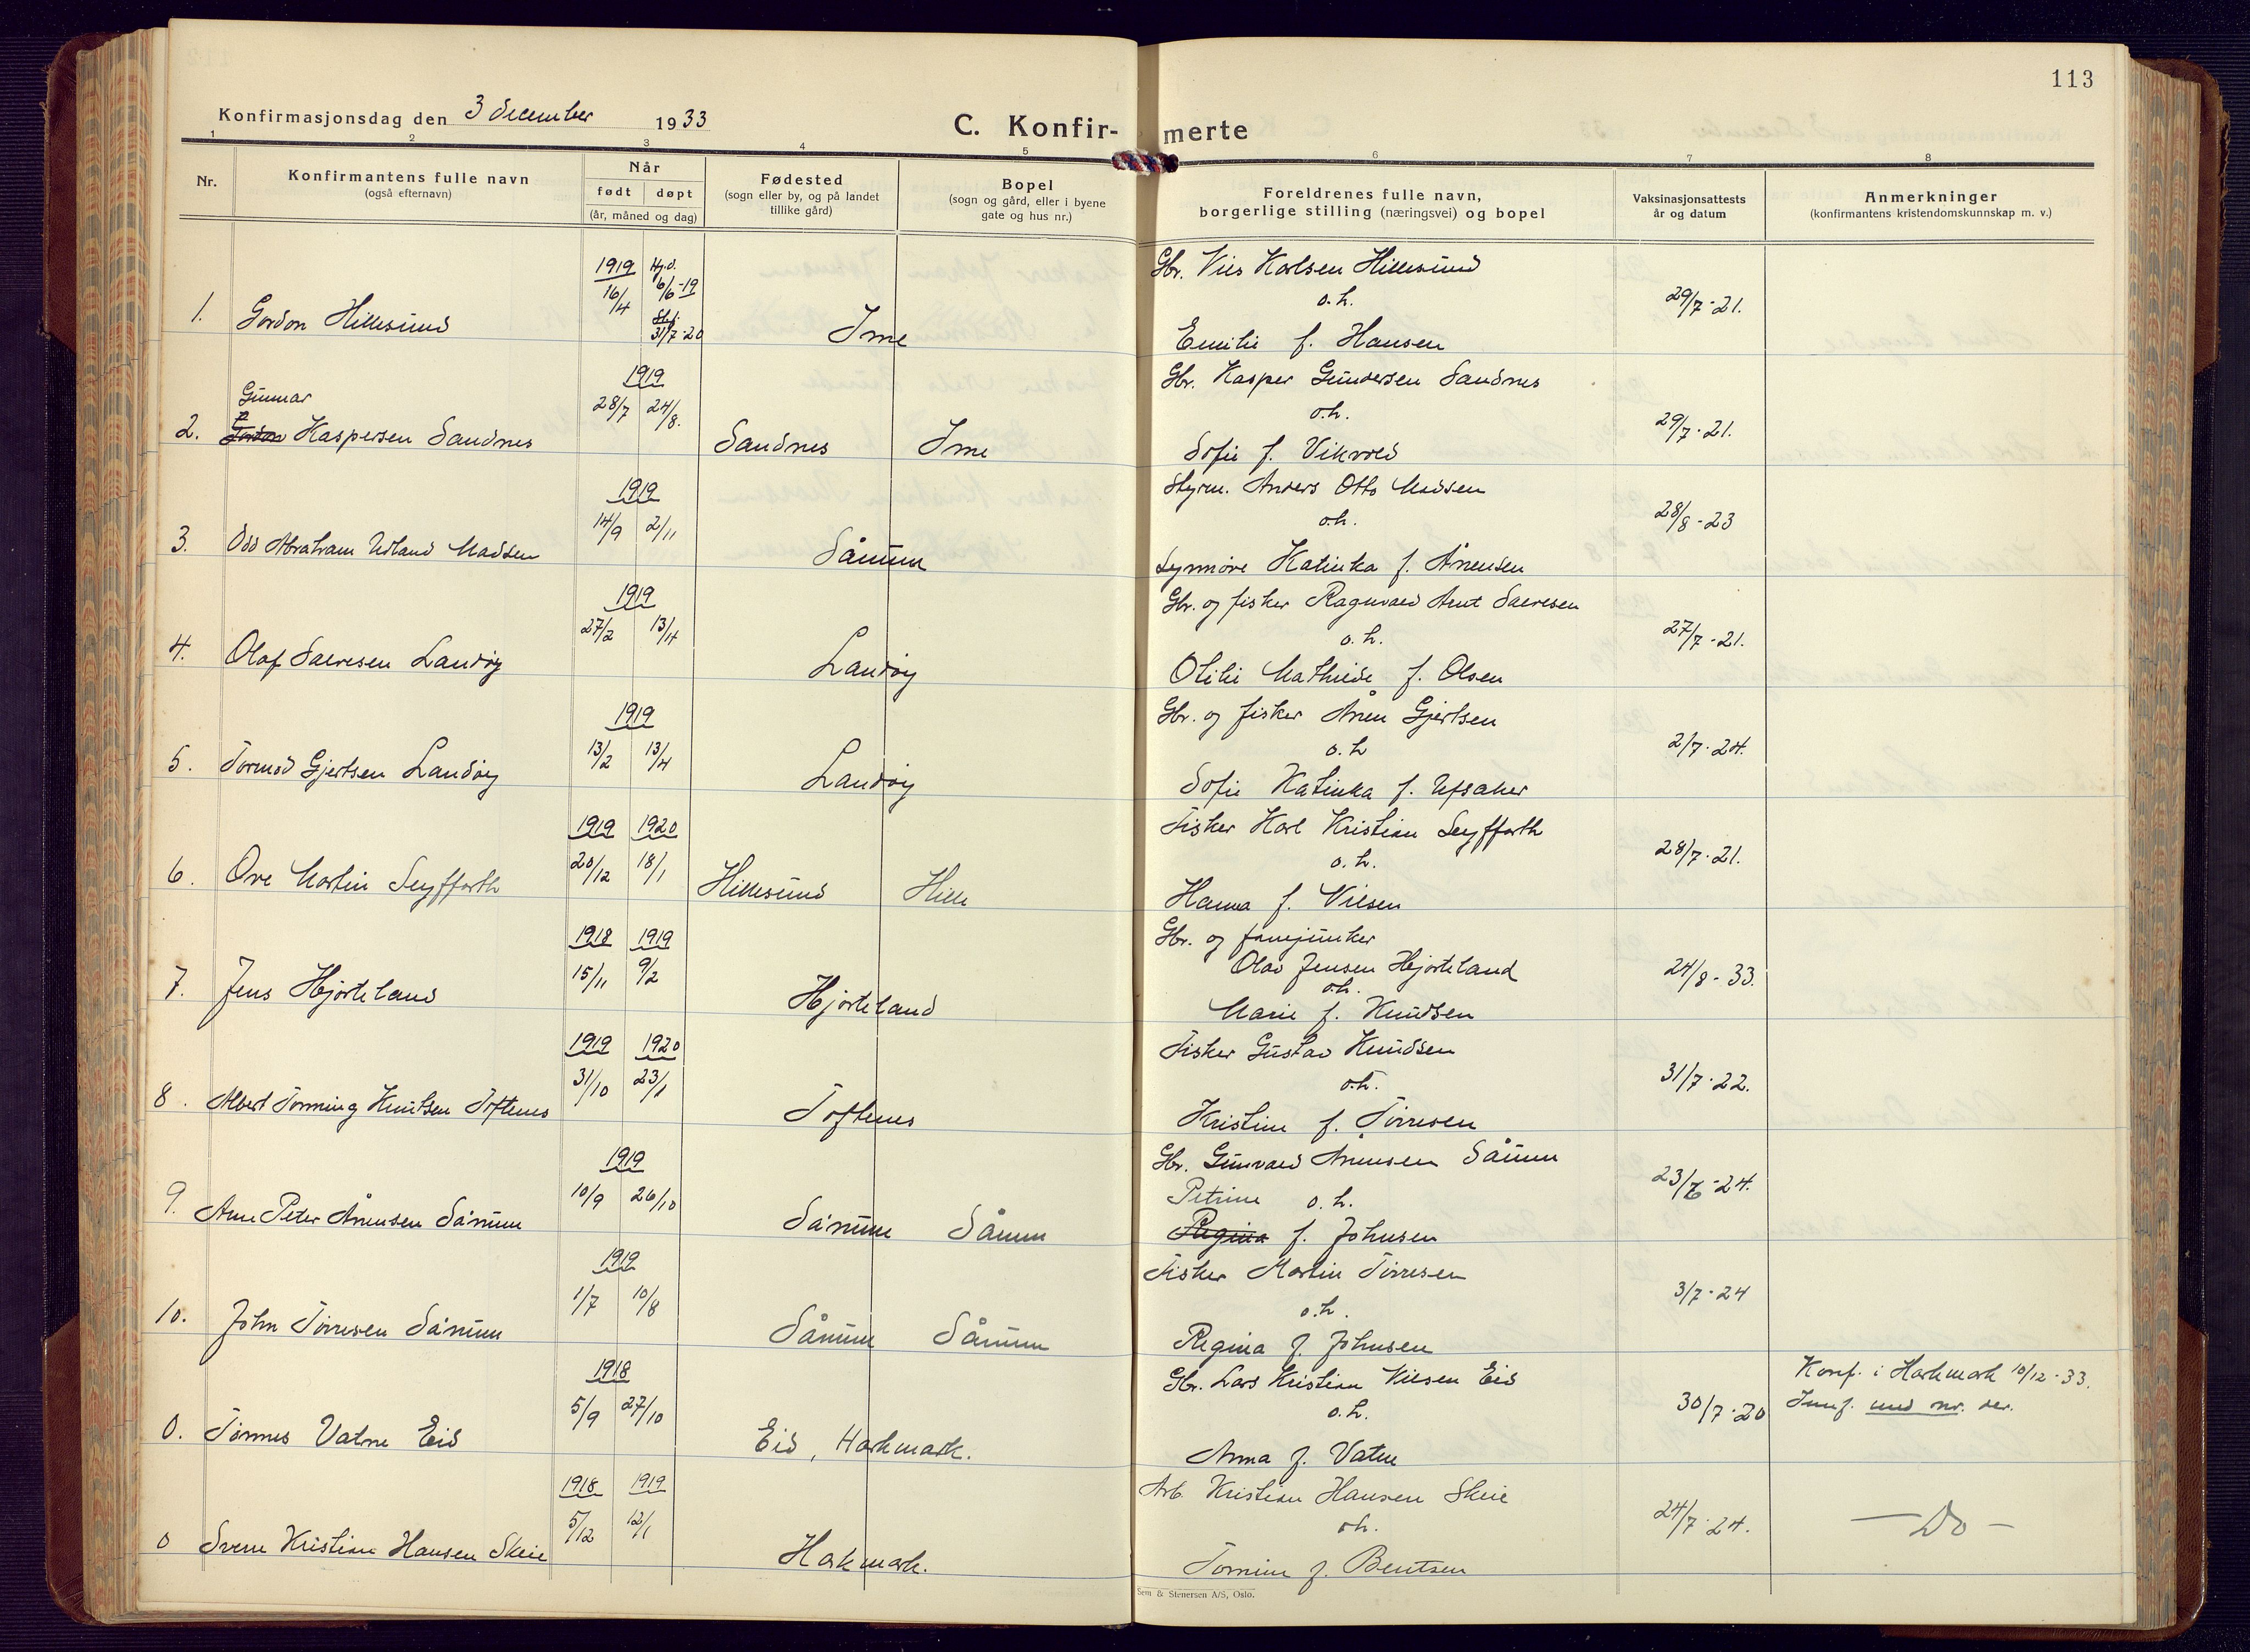 113
Konfirmasjonsdag den 3 december 1933
C. Konfir- merte
1 2 3 4 5 6 7 8
Nr.
Konfirmantens fulle navn
(også efternavn)
Når
født døpt
(år, måned og dag)
Fødested
(sogn eller by, og på landet
tillike gård)
Bopel
(sogn og gård, eller i byene
gate og hus nr.)
Foreldrenes fulle navn,
borgerlige stilling (næringsvei) og bopel
Vaksinasjonsattests
år og datum
Anmerkninger
(konfirmantens kristendomskunnskap m. v.)
1919 Hj.d.
16/4 6/6-19
31/7-20
1. Gordon Hillesund
Ime
Gbr. Nils Karlsen Hillesund
o. h.
Emilie f. Hansen
29/7-21.
1919
Gunnar
28/7 24/8.
2. Gordon Kaspersen Sandnes
Sandnes Ime
Gbr. Kasper Gundersen Sandnes
o.h.
Sofie f. Vikvold
29/7-21.
1919
14/9 2/11
3. Odd Abraham Udland Madsen
Sånum
Styrm. Anders Otto Madsen
o.h.
Synnöve Katinka f. Ånensen
28/8-23
1919
27/2 13/4
4. Olaf Salvesen Landöy
Landöy
Gbr. og fisker Ragnvald Arnt Salvesen
o. h.
Otilie Mathilde f. Olsen
27/7-21.
1919
13/2 13/4
5. Tormod Gjertsen Landöy
Landöy
Gbr. og fisker Ånen Gjertsen
o. h
Sofie Katinka f. Ufsaker
2/7-24.
1919 1920
20/12 18/1
6. Ove Martin Seyffarth
Hillesund Hille
Fisker Karl Kristian Seyffarth
o. h.
Hanna f. Nilsen
28/7-21.
1918 1919
15/11 9/2
7. Jens Hjorteland
Hjorteland
Gbr. og fanejunker
Olav Jensen Hjorteland
o.h.
Marie f. Knudsen
24/8-33.
1919 1920
31/10 23/1
8. Albert Torming Knutsen Toftenes
Toftenes
Fisker Gustav Knudsen
o.h.
Kristine f. Törresen
31/7-22.
1919
10/9 26/10
9. Arne Peter Ånensen Sånum
Sånum Sånum
Gbr. Gunvald Ånensen Sånum
Petrine o. h.
Regina f. Johnsen
23/6-24.
1919
1/7 10/8
10. John Törresen Sånum
Sånum Sånum
Fisker Martin Törresen
o.h.
Regina f. Johnsen
3/7-24
1918
5/9 27/10
0. Tönnes Vatne Eid
Eid, Harkmark.
Gbr. Lars Kristian Nilsen Eid
o.h.
Anna f. Vatne
30/7-20
Konf. i Harkmark 10/12-33.
Innf. med nr. der.
1918 1919
5/12 12/1
0 Sverre Kristian Hansen Skeie
Harkmark.
Arb. Kristian Hansen Skeie
o.h.
Tomine f. Bentsen
24/7-24.
— Do —
Sem & Stenersen A/S, Oslo.